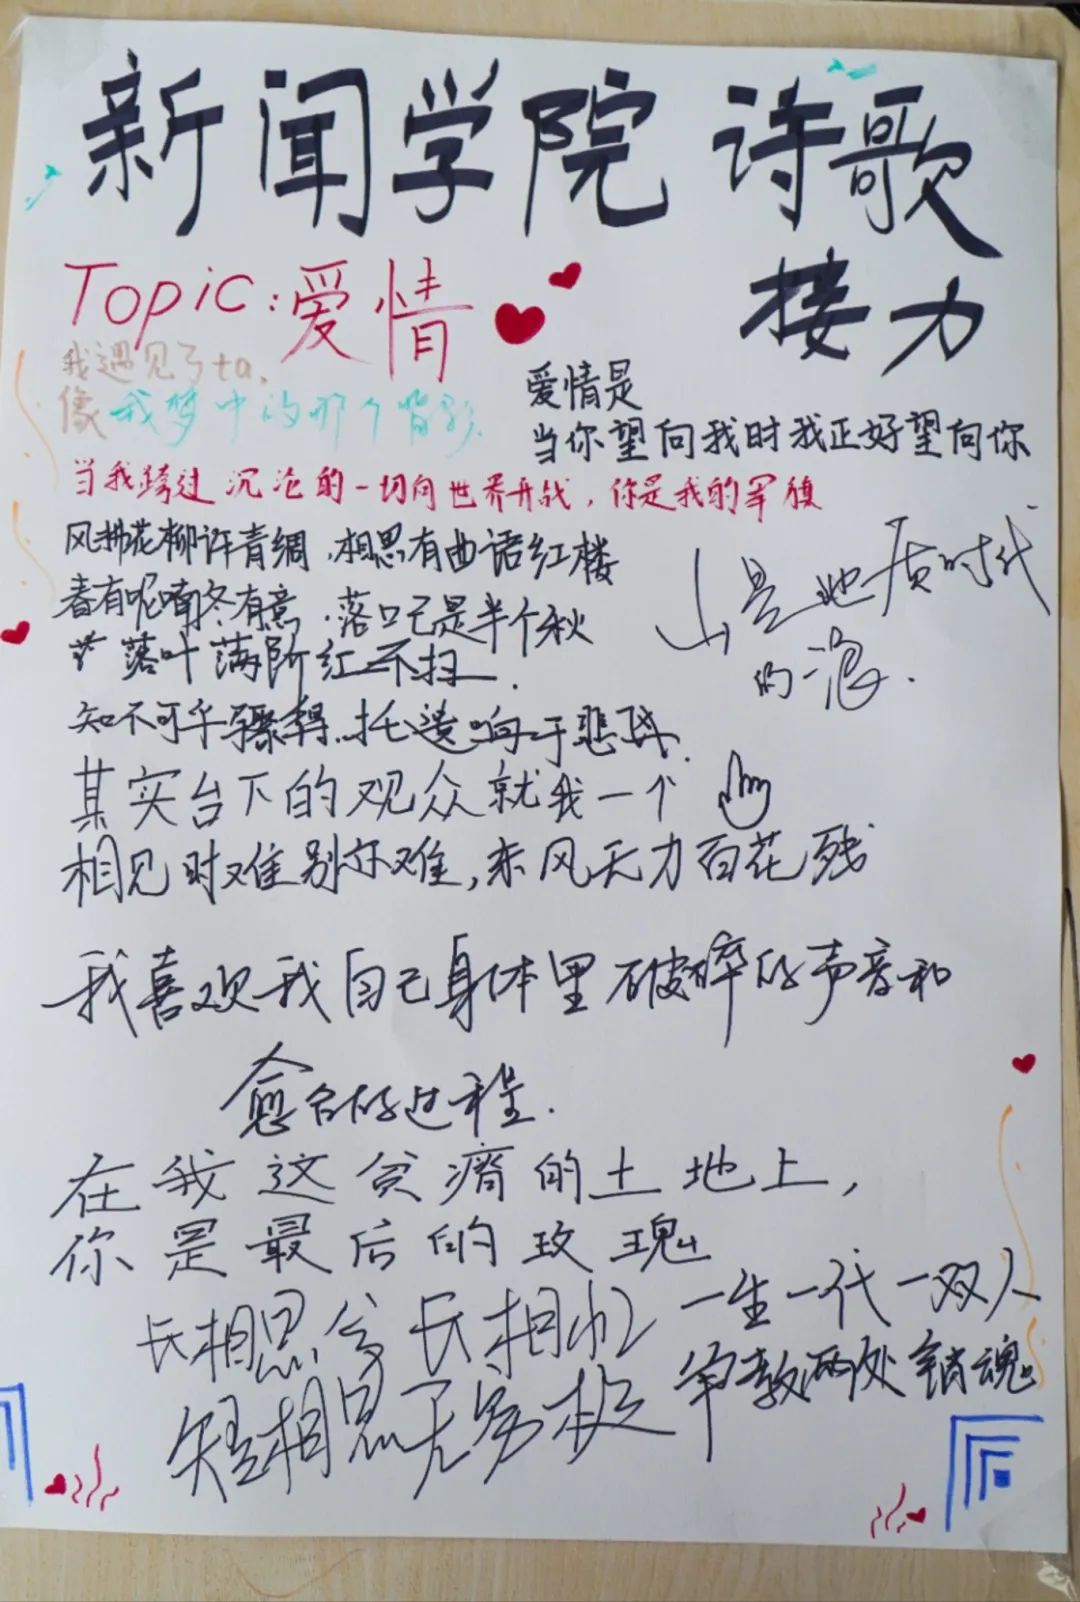 新闻学院 诗歌
接力
Topic:爱情
我遇见了ta,
像我梦中的那个背影.
爱情是
当你望向我时我正好望向你
当我跨过沉沦的一切向世界开战,你是我的军旗
风拂花柳许青绸,相思有曲语红楼
春有呢喃冬有意,落口已是半个秋
落叶满阶红不扫.
山是地质时代
的浪.
知不可乎骤得.托遗响于悲风.
其实台下的观众就我一个
相见时难别亦难,东风无力百花残
我喜欢我自己身体里破碎的声音和
愈合的过程.
在我这贫瘠的土地上,
你是最后的玫瑰
长相思兮长相忆
短相思兮无穷极
一生一代一双人
争教两处销魂